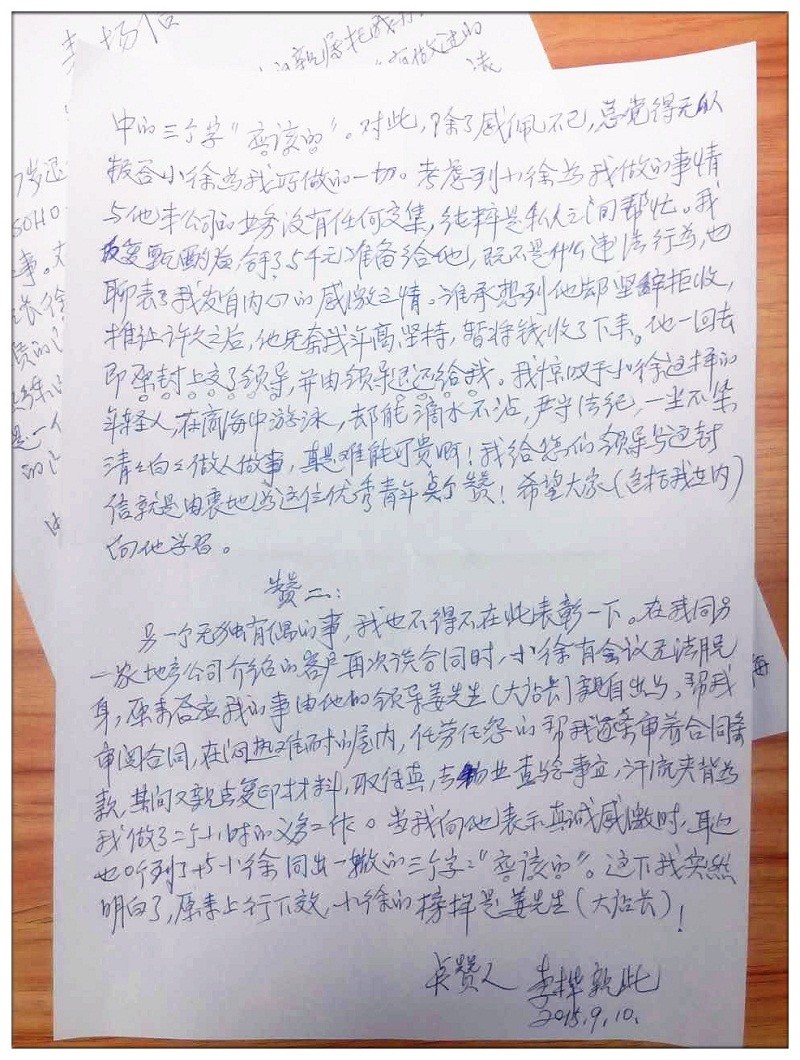 李场信
的亲属托我办
有做过的
法
岁还
SOHO
事。
长徐
是一个
的
中的三个字"应该的"。对此，除了感佩不已，总觉得无以
报答小徐为我所做的一切。考虑到小徐为我做的事情
与他本公司的业务没有任何交集，纯粹是私人之间帮忙。我
反复甄酌后，合了5千元准备给他，既不是什么违法行为，也
聊表了我发自内心的感激之情。谁承想到他却坚辞拒收，
推让许久之后，他无奈我年高坚持，暂将钱收了下来。他一回去
即原封上交了领导，并由领导退还给我。我惊叹于小徐这样的
年轻人，在商海中游泳，却能滴水不沾，严守法纪，一尘不染
清清白白做人做事，真是难能可贵啊！我给您们领导写这封
信就是由衷地为这位优秀青年点个赞！希望大家（包括我在内）
向他学习。
赞二：
另一个无独有偶的事，我也不得不在此表彰一下。在我同另
一家地产公司介绍的客户再次谈合同时，小徐有会议无法脱
身，原来答应我的事由他的领导姜先生（大站长）亲自出马，帮我
审阅合同，在闷热难耐的屋内，任劳任怨的帮我逐条审养合同条
款，其间又亲去复印材料，取传真，去物业查与会事宜，汗流夹背为
我做了二个小时的义务工作。当我向他表示真诚感激时，耳边
也听到了与小徐同出一辙的三个字："应该的"。这下我突然
明白了，原来上行下效，小徐的榜样是姜先生（大站长）！
点赞人 李桦
2015.9.10.